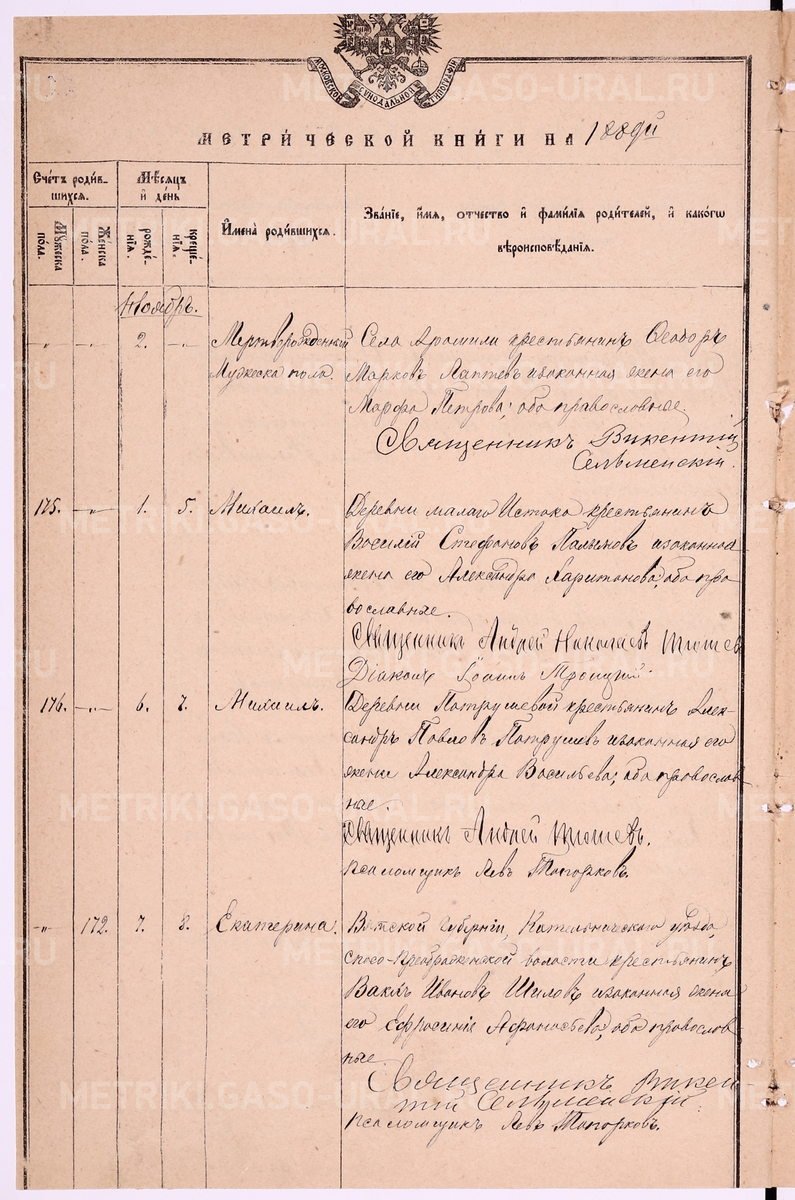 МОСКОВСКОЙ СѴНОДАЛЬНОЙ ТИПОГРАФІИ
МЕТРИ́ЧЕСКОЙ КНИ́ГИ НА
Сче́тъ роди́в-
шихся.
Мѣ́сяцъ
и҆ де́нь
Му́жеска
по́ла.
Же́нска
по́ла.
рожде́-
нїя.
креще́-
нїя.
И҆мена̀ роди́вшихся.
Зва́нїе, и҆́мя, ѻ҆́тчество и҆ фами́лїя роди́телей, и҆ како́гѡ
вѣроисповѣ́данїя.
Ноябрь.
„ „ 2. „ Мертворожденный Села Арамили крестьянинъ Ѳеодоръ
Мужеска пола. Марковъ Лаптевъ и законная жена его
Марфа Петрова; оба православные.
Священникъ Викентій
Сельменскій.
175. „ 1. 5. Михаилъ. Деревни малаго Истока крестьянинъ
Василій Стефановъ и законная
жена его Александра Харитонова, оба пра
вославные.
Священникъ Андрей Николаевъ
Діаконъ Іоаннъ Троицкій.
176. „ 6. 7. Михаилъ. Деревни Патрушевой крестьянинъ Алек-
сандръ Павловъ Патрушевъ и законная его
жена Александра Васильева; оба православ
ные.
Священникъ Андрей
Псаломщикъ Левъ Топорковъ.
„ 172. 7. 8. Екатерина. Вятской губерніи, Котельническаго уѣзда,
Спасо-Преображенской волости крестьянинъ
Ивановъ Шиловъ и законная жена
его Ефросинія Афанасьева, оба православ-
ные
Священникъ Викен
тій Сельменскій.
Псаломщикъ Левъ Топорковъ.
METRIKI.GASO-URAL.RU